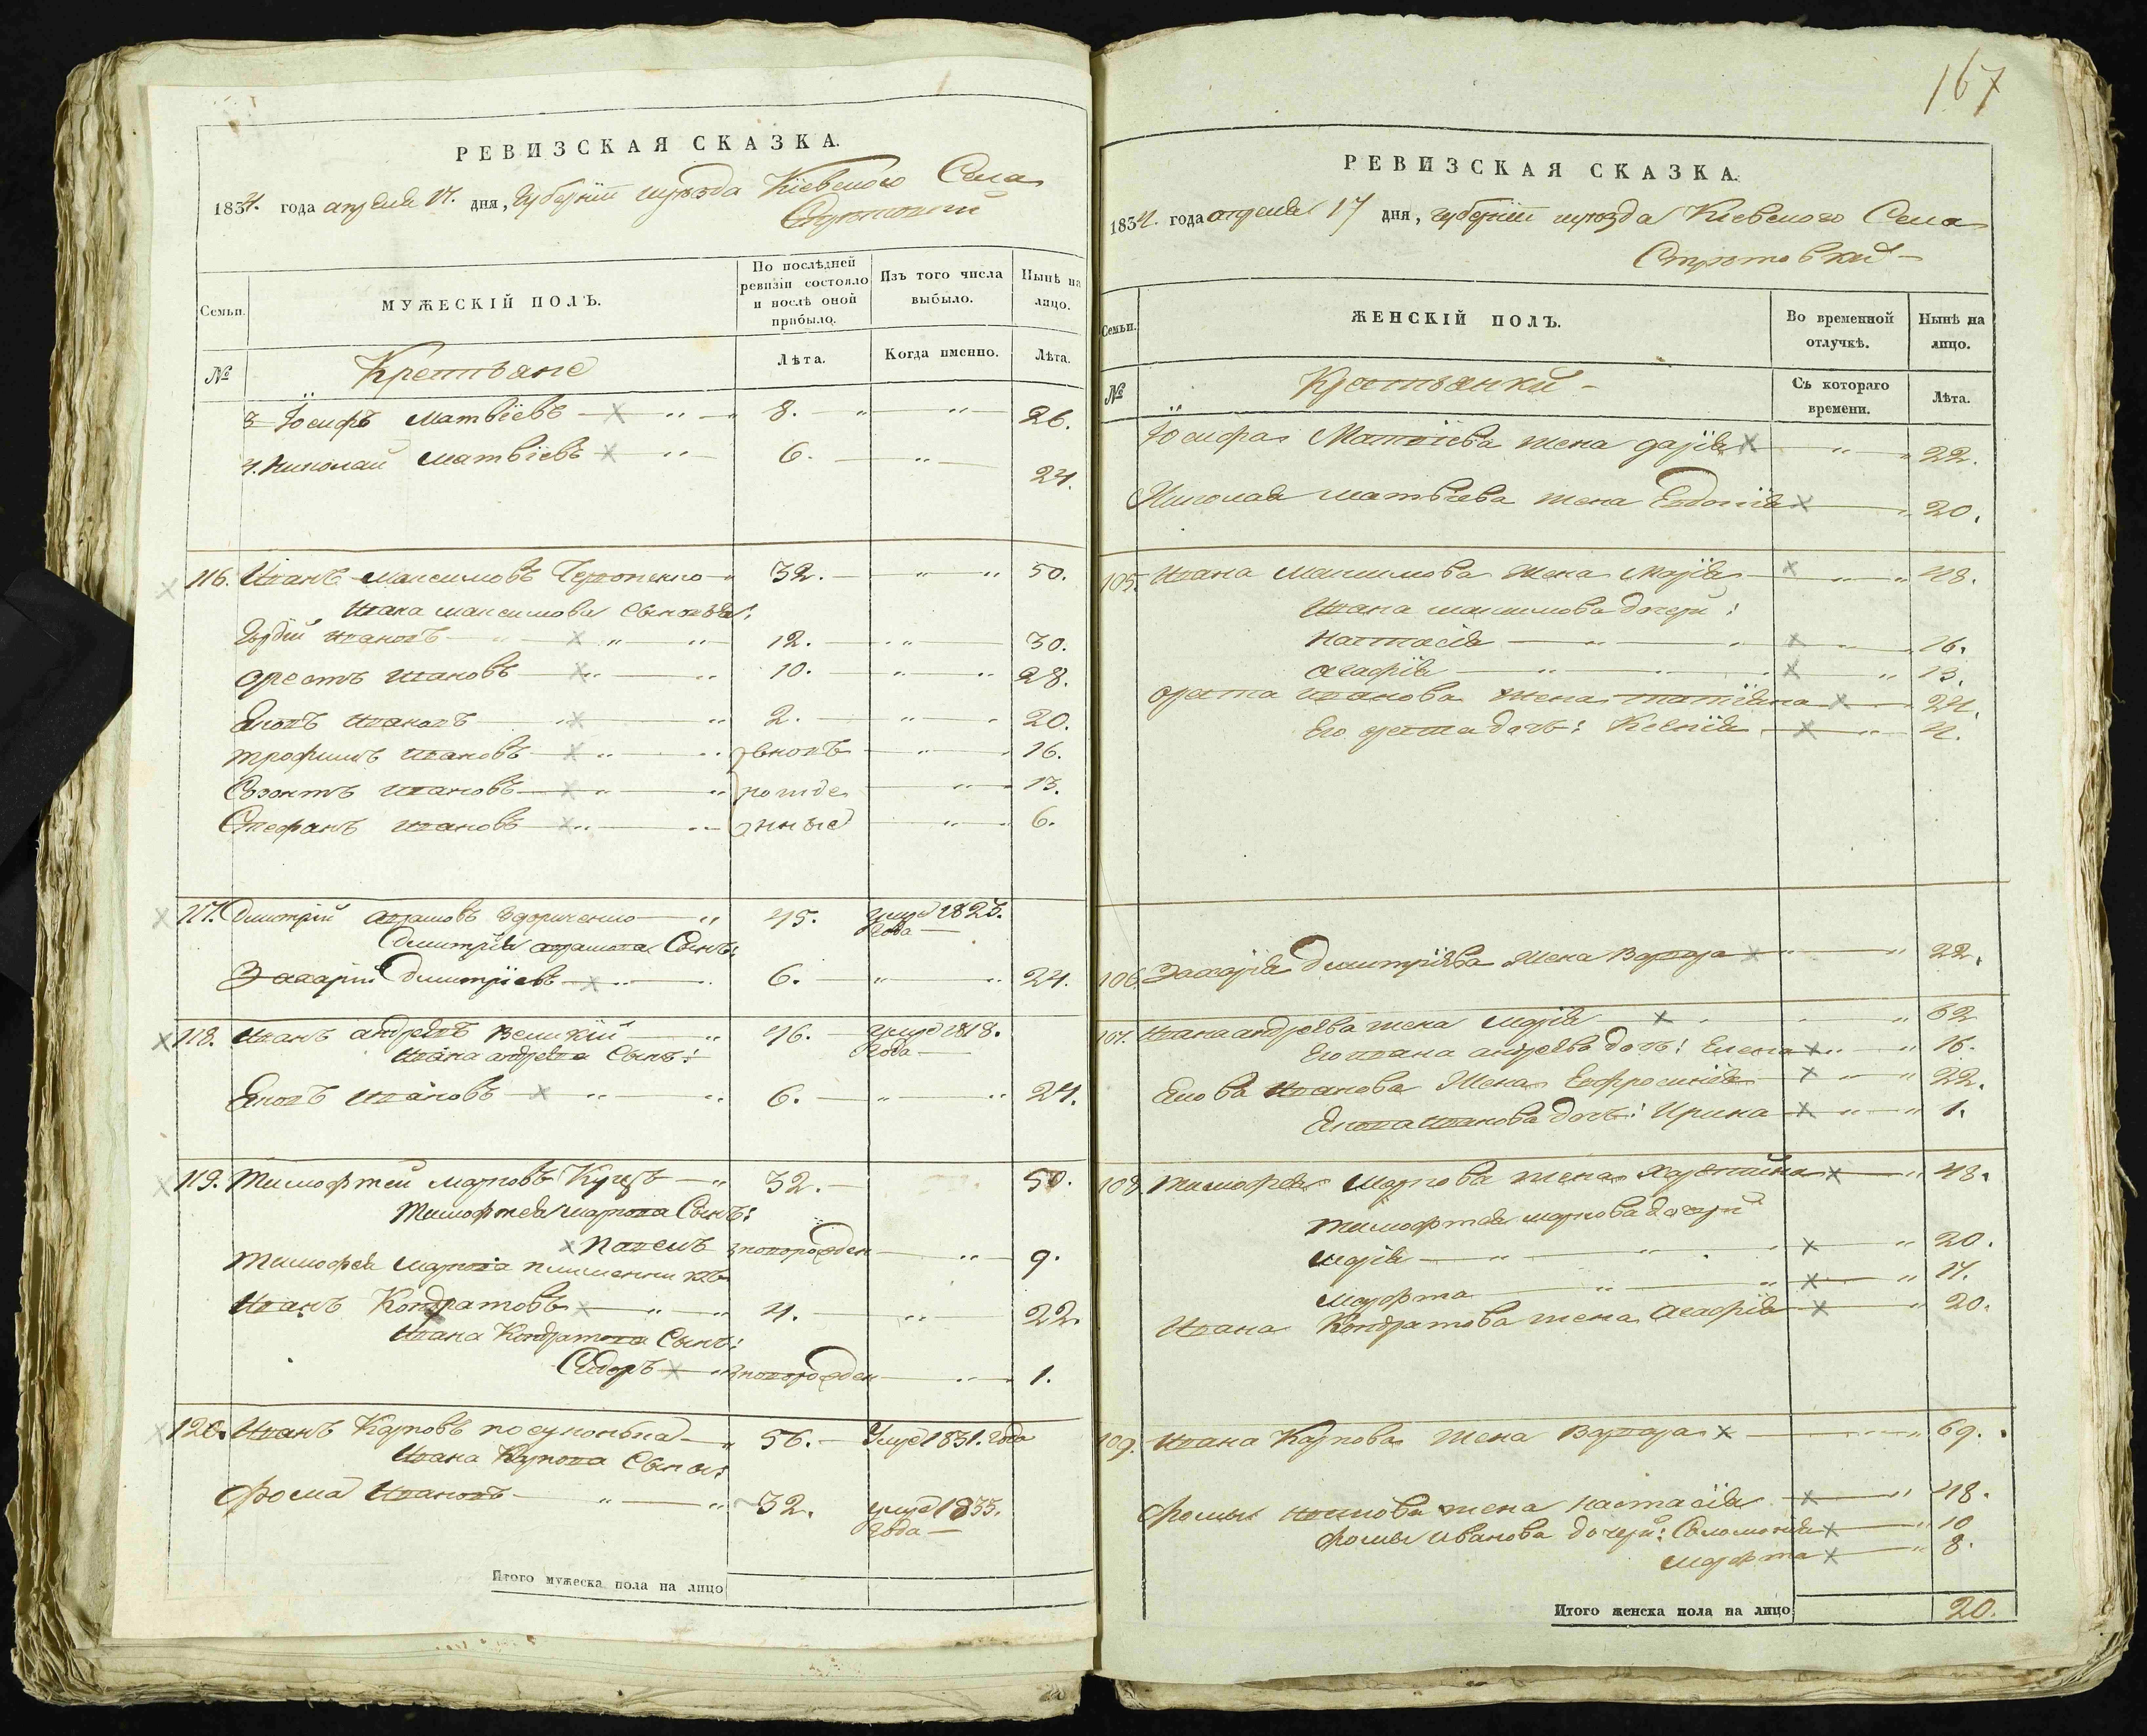 РЕВИЗСКАЯ СКАЗКА.
1834. года апреля 17. дня, Губернiи иуезда Кiевского Села
Семьи.
МУЖЕСКIЙ ПОЛЪ.
По послѣдней ревизiи состояло и послѣ оной прибыло.
Изъ того числа выбыло.
Нынѣ на лицо.
№
Крестьяне
Лѣта.
Когда именно.
Лѣта.
3 Iосифъ Матвiевъ 8. 26.
4. Николай Матвiевъ 6. 24.
116. Иванъ Максимовъ 32. 50.
Ивана Максимова Сыновья:
Ивановъ 12. 30.
Орестъ Ивановъ 10. 28.
Яковъ Ивановъ 2. 20.
Трофимъ Ивановъ вновь 16.
Созонтъ Ивановъ рожде 13.
Стефанъ Ивановъ нные 6.
117. Дмитрiй Авра­мовъ 45. умре 1823. года
Дмитрiя Аврамова Сынъ:
Захарiй Дмитрiевъ 6. 24.
118. Иванъ Андреевъ Великiй 46. умре 1818. года
Ивана Андреева Сынъ:
Яковъ Ивановъ 6. 24.
119. Тимофтей Марковъ Куцъ 32. 50.
Тимофтея Маркова Сынъ:
Павелъ новорожден 9.
Тимофея Маркова племенникъ
Иванъ Кондратовъ 4. 22.
Ивана Кондратова Сынъ:
Сидоръ новорожден 1.
120. Иванъ Карповъ 56. Умре 1831. года
Ивана Карпова Сынъ:
Фома Ивановъ 32. умре 1833. года
Итого мужеска пола на лицо
167
РЕВИЗСКАЯ СКАЗКА.
1834. года апреля 17 дня, губернiи иуезда Кiевского Села
Семьи.
ЖЕНСКIЙ ПОЛЪ.
Во временной отлучкѣ.
Нынѣ на лицо.
№
Крестьянки
Съ котораго времени.
Лѣта.
Iосифа Матвiева жена Дарiя 22.
Николая Матвiева жена Евдокiя 20.
105. Ивана Максимова жена Марiя 48.
Ивана Максимова дочери:
Настасiя 16.
Агафiя 13.
Ореста Иванова жена Татiяна 24.
Его Ореста дочь: Ксенiя 4.
106. Захарiя Дмитрiева жена Варвара 22.
107. Ивана Андреева жена Марiя 62
Его Ивана Андреева дочь: Елена 16.
Якова Иванова жена Ефросинiя 22.
Якова Иванова дочь: Ирина 1.
108. Тимофея Маркова жена 48.
Тимофтея Маркова дочери
Марiя 20.
Марфта 17.
Ивана Кондратова жена Агафiя 20.
109. Ивана Карпова жена Варвара 69.
Фомы Иванова жена Настасiя 48.
Фомы Иванова дочери: Соломонiя 10
Марфта 8.
Итого женска пола на лицо 20.